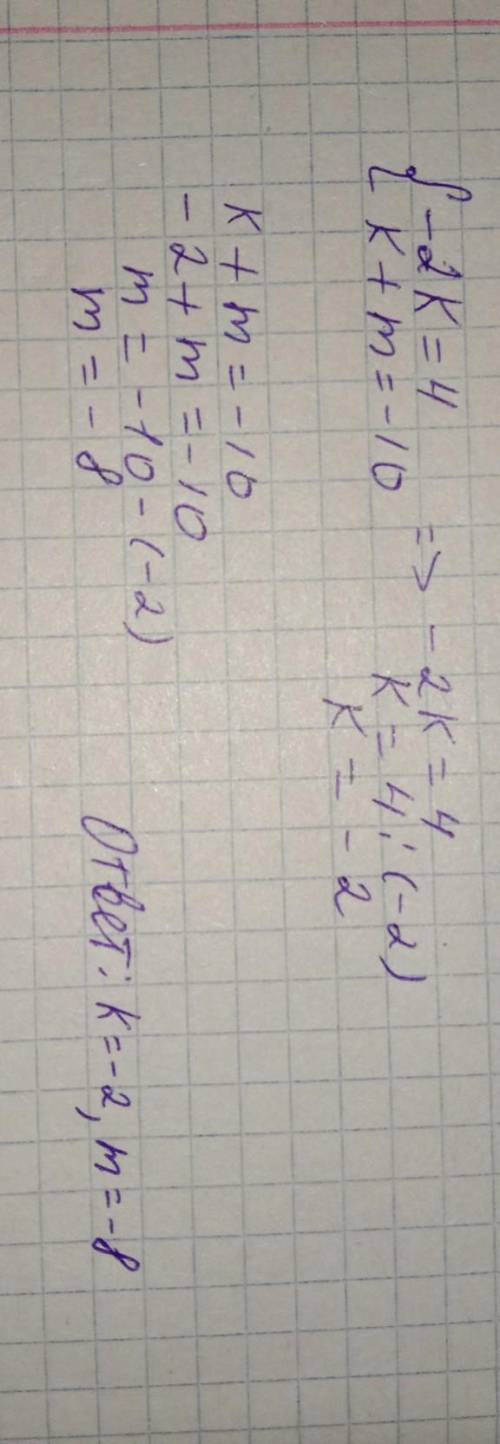 { -2K = 4
K + m = -10 => -2K = 4
K = 4 : (-2)
K = -2
K + m = -10
-2 + m = -10
m = -10 - (-2)
m = -8
Ответ: K = -2, m = -8